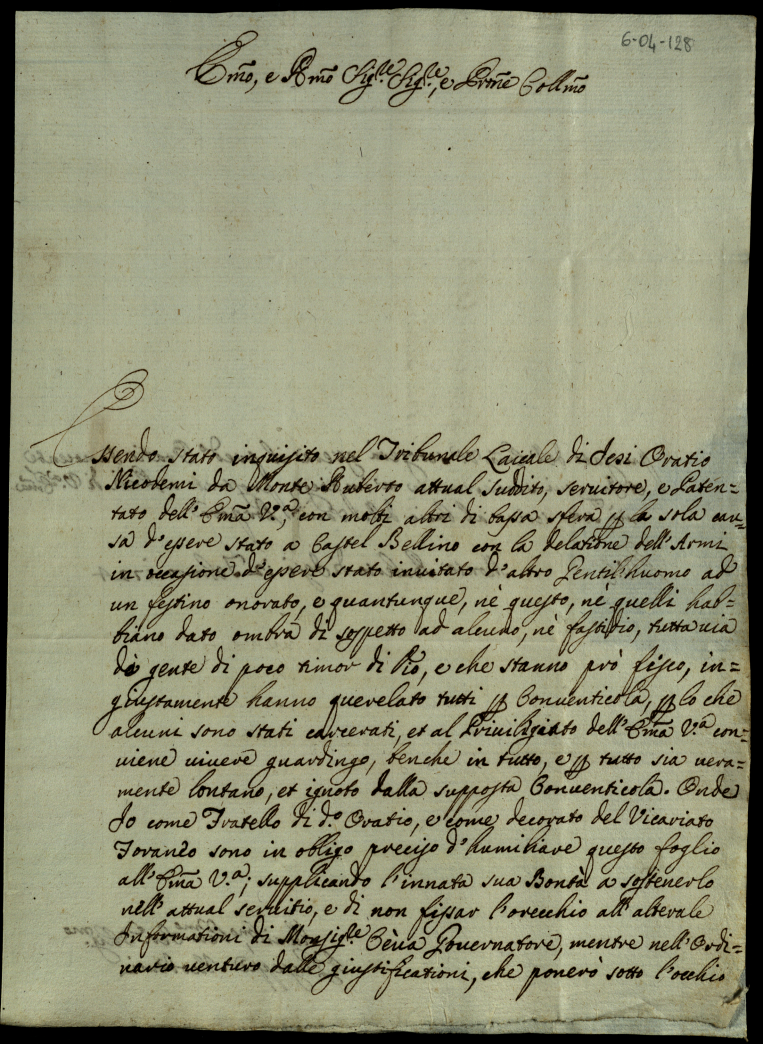 6-04-128
Emo, e Rmo Sigre Sigre, e Prne Collmo
Essendo stato inquisito nel Tribunale Laicale di Jesi Oratio
Nicodemi da Monte Ruberto attual suddito, servitore, e Paten=
tato dell'Emã V.ª, con molti altri di bassa sfera p la sola cau=
sa d'essere stato a Castel Bellino con la delatione dell'Armi
in occasione d'essere stato invitato d'altro Gentilhuomo ad
un festino onorato, e quantunque, nè questo, nè quelli hab=
biano dato ombra di sospetto ad alcuno, nè fastidio, tuttavia
da gente di poco timor di Dio, e che stanno prò fisco, in=
giustamente hanno querelato tutti p Conventicola, p lo che
alcuni sono stati carcerati, et al Privilegiato dell'Emã V.ª con=
viene vivere guardingo, benche in tutto, e p tutto sia vera=
mente lontano, et ignoto dalla supposta Conventicola. Onde
Io come Fratello di d.º Oratio, e come decorato del Vicariato
Foraneo sono in obligo preciso d'humiliare questo foglio
all'Emã V.ª; supplicando l'innata sua Bontà a sostenerlo
nell'attual servitio, e di non fissar l'orecchio all'alterate
Informationi di Monsigre Cèva Governatore, mentre nell'Ordi=
nario venturo dalle giustificationi, che ponerò sotto l'occhio